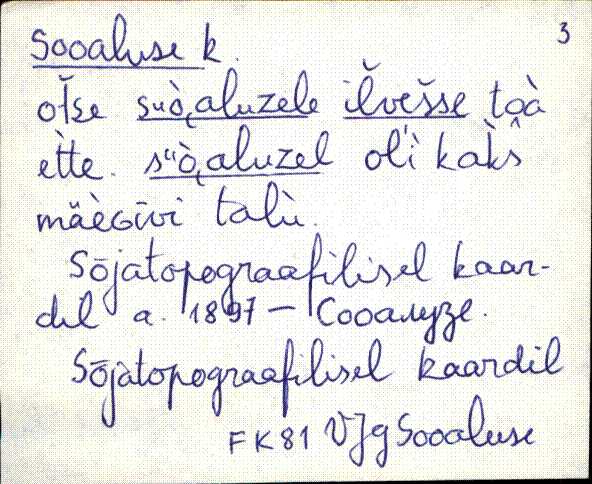 3
Sooaluse k.
otše suò̭aluzele ilvešše toà
ètte. suò̭aluzel ol'ì kàkš
mäègivi talù.
Sōjatopograafilisel kaar-
dil a. 1897 — Сооалузе.
Sōjatopograafilisel kaardil
FK81 VJg Sooaluse